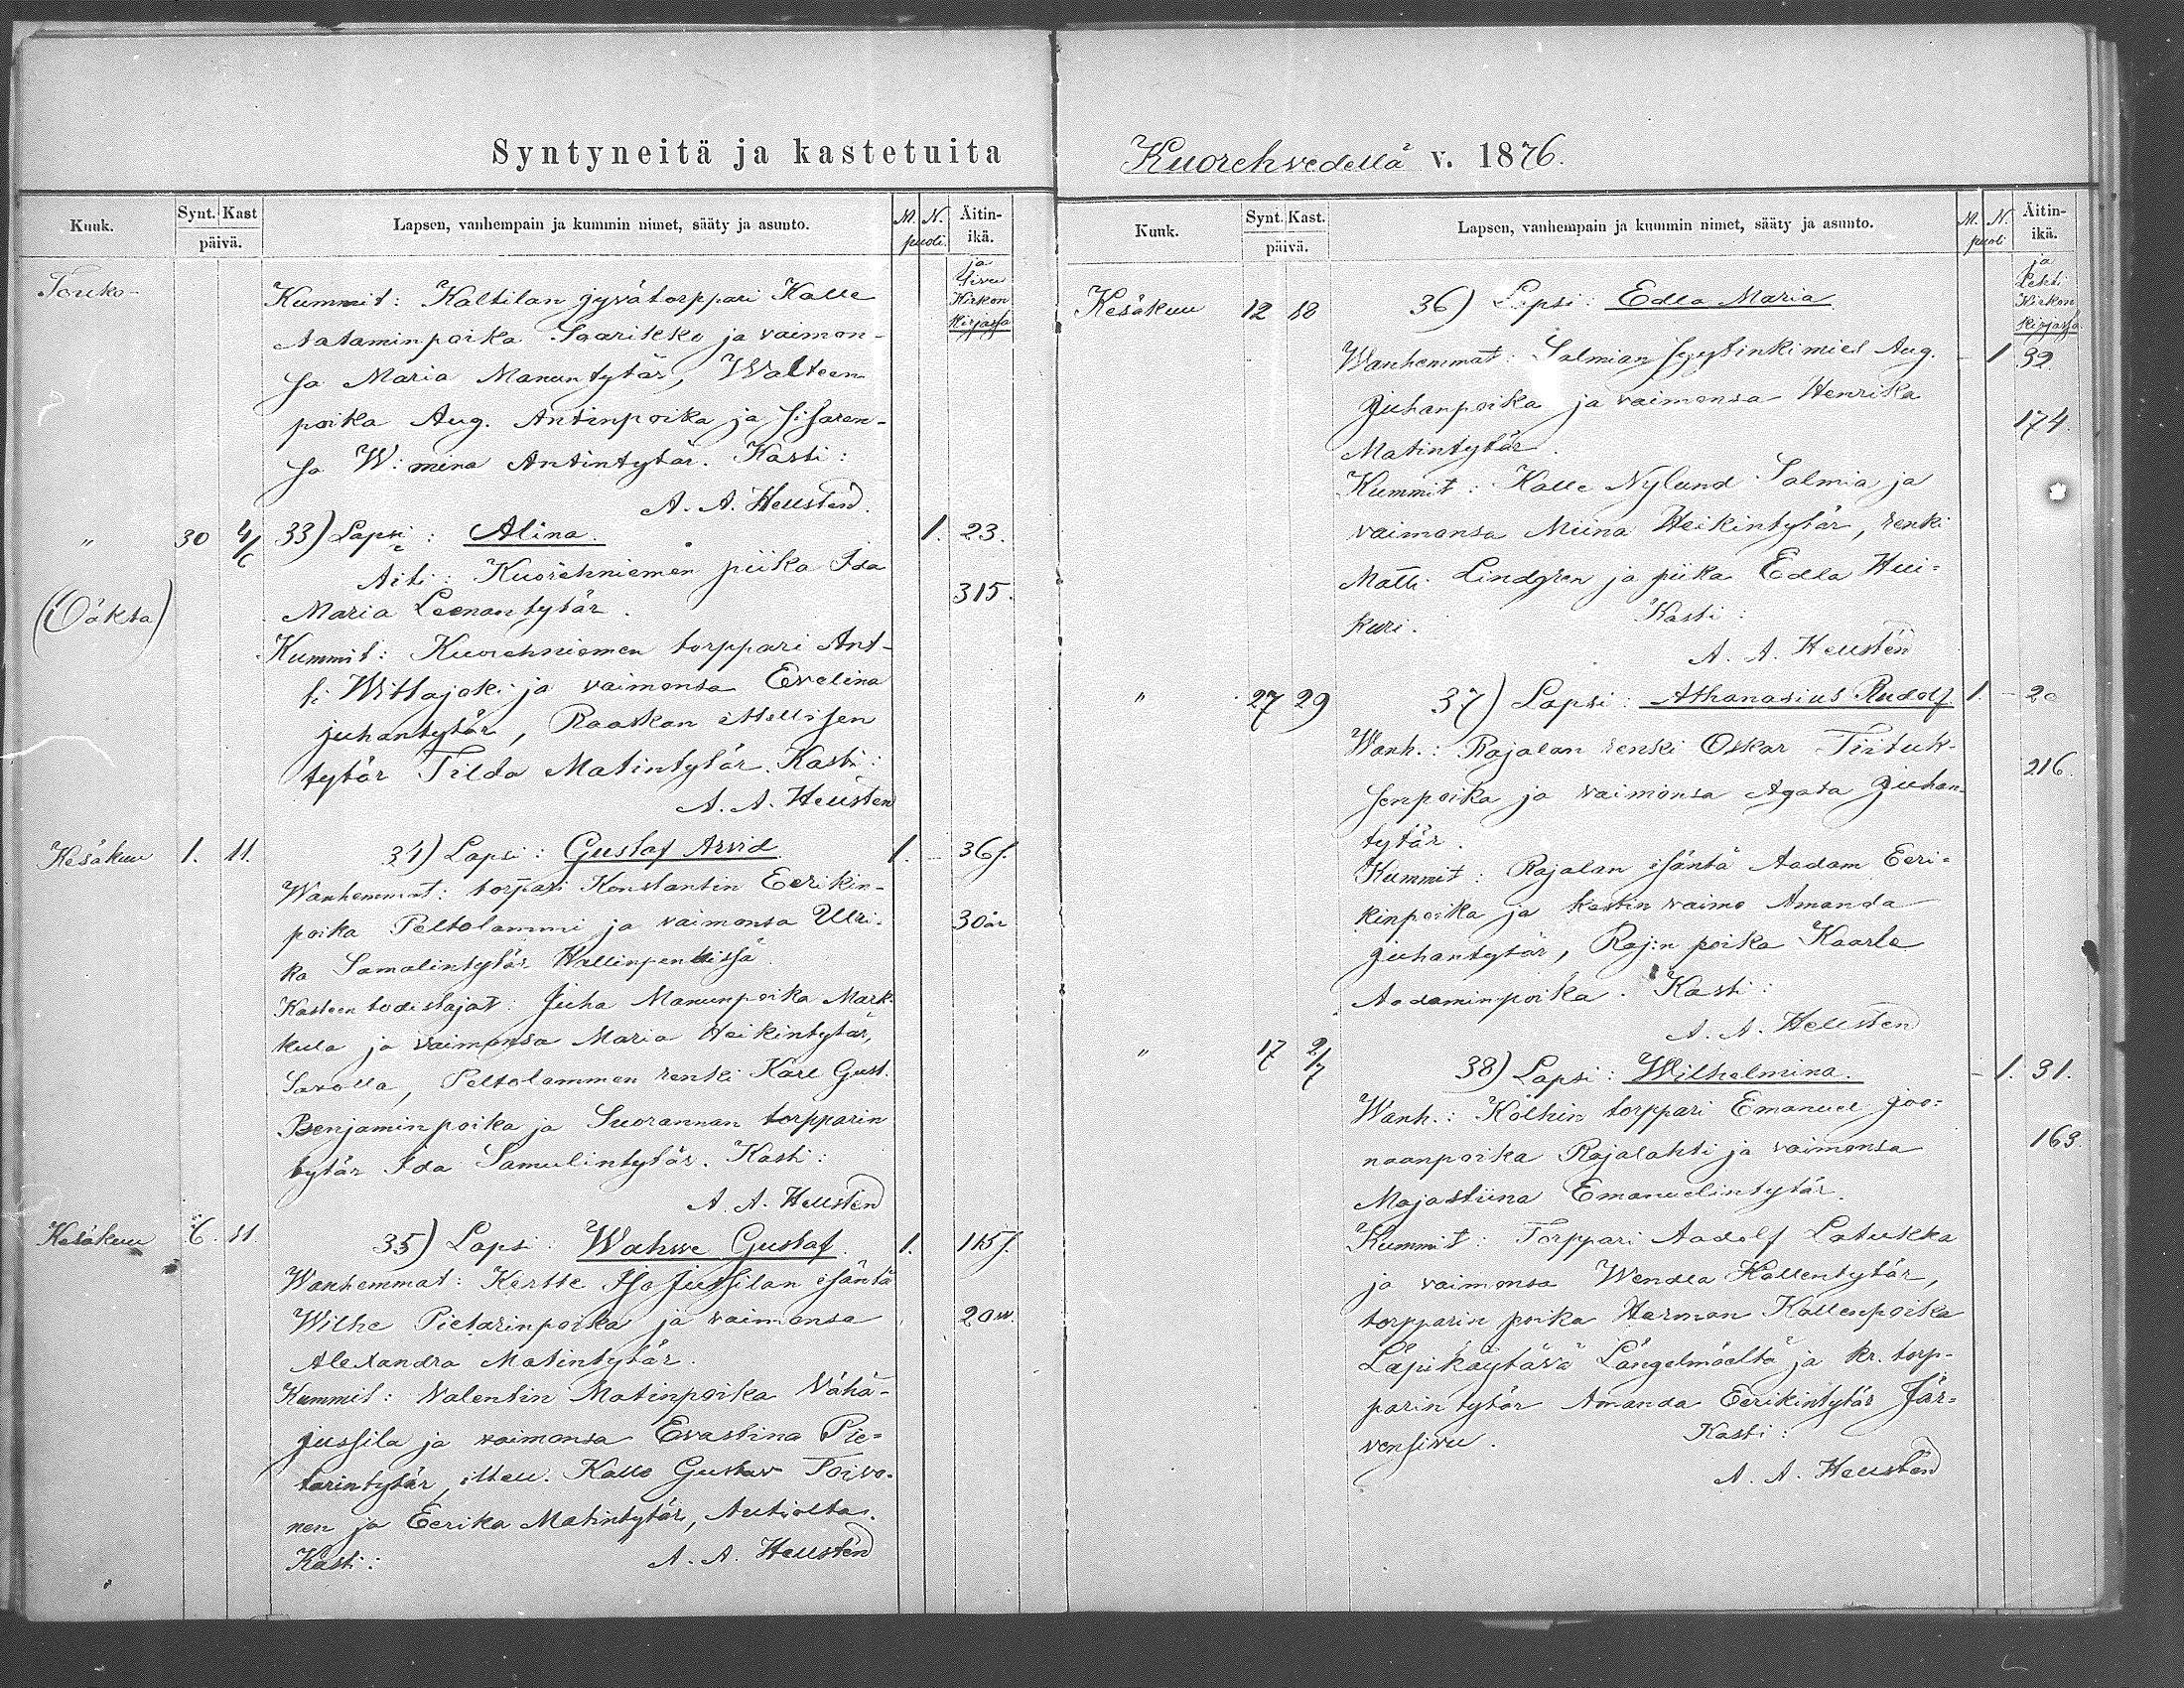 Syntyneitä ja kastetuita
Kuuk. Synt. Kast päivä. Lapsen, vanhempain ja kummin nimet, sääty ja asunto. M. N. puoli. Äitin-ikä.
ja sivu Kirkon kirjassa
Touko-
Kummit: Kaltilan jyvätorppari Kalle
Aataminpoika Saarikko ja vaimon-
sa Maria Manuntytär, Walteen
poika Aug. Antinpoika ja sisaren-
sa W:mina Antintytär. Kasti:
A. A. Hellstén.
" 30 4/6 33) Lapsi: Alina. 1. 23.
Äiti: Kuorehniemen piika Ida
(Oäkta) Maria Leenantytär. 315.
Kummit: Kuorehniemen torppari Ant-
ti Wittajoki ja vaimonsa Evelina
juhantytär, Raaskan itsellisen
tytär Tilda Matintytär. Kasti:
A. A. Hellstén
Kesäkuu 1. 11. 34) Lapsi: Gustaf Arvid. 1. - 36 s.
Wanhemmat: torpari Konstantin Eerikin-
poika Peltolammi ja vaimonsa Ulri- 30 år
ka Samalintytär Wallinpentissä.
Kasteen todistajat: Juha Manunpoika Mark-
kula ja vaimonsa Maria Heikintytär,
Peltolammen renki Karl Gust.
Benjaminpoika ja Suorannan torpparin
tytär Ida Samulintytär. Kasti:
A. A. Hellstén
Kesäkuu 6. 11. 35) Lapsi: Wahwe Gustaf. 1. 115 s.
Wanhemmat: Kertte Iso Jussilan isäntä
Wilhe Pietarinpoika ja vaimonsa 20 w.
Alexandra Matintytär.
Kummit: Valentin Matinpoika Vähä-
jussila ja vaimonsa Evastina Pie-
tarintytär, itsell. Kalle Gustav Toivo-
nen ja Eerika Matintytär, Autiolta.
Kasti: A. A. Hellstén
Kuorehvedellä v. 1876.
Kuuk. Synt. Kast. päivä. Lapsen, vanhempain ja kummin nimet, sääty ja asunto. M. N. puoli Äitin-ikä.
ja Lehti Kirkon kirjassa
Kesäkuu 12 18 36) Lapsi: Edla Maria
Wanhemmat: Salmian syytinkimies Aug. - 1 39.
Juhanpoika ja vaimonsa Henrika 174.
Matintytär.
Kummit: Kalle Nylund Salmia ja
vaimonsa Miina Heikintytär, renki
Matti Lindgren ja piika Edla Hui-
kuri. Kasti:
A. A. Hellstén
" 27 29 37) Lapsi: Athanasius Rudolf 1. - 20
Wanh.: Rajalan renki Oskar Tirtuk- 216.
senpoika ja vaimonsa Agata Juhan-
tytär.
Kummit: Rajalan isäntä Aadam Eeri-
kinpoika ja kestin vaimo Amanda
Juhantytär, Raj:n poika Kaarle
Aadaminpoika. Kasti:
A. A. Hellstén
" 17 2/7 38) Lapsi: Wilhelmina. - 1. 31.
Wanh.: Kolhin torppari Emanuel Joo-
naanpoika Rajalahti ja vaimonsa 163.
Majastiina Emanuelintytär.
Kummit: Torppari Aadolf Latukka
ja vaimonsa Wendla Kallentytär,
torpparin poika Herman Kallenpoika
Läpikäytävä Längelmäeltä ja kr. torp-
parin tytär Amanda Eerikintytär Jär-
vensivu. Kasti:
A. A. Hellstén